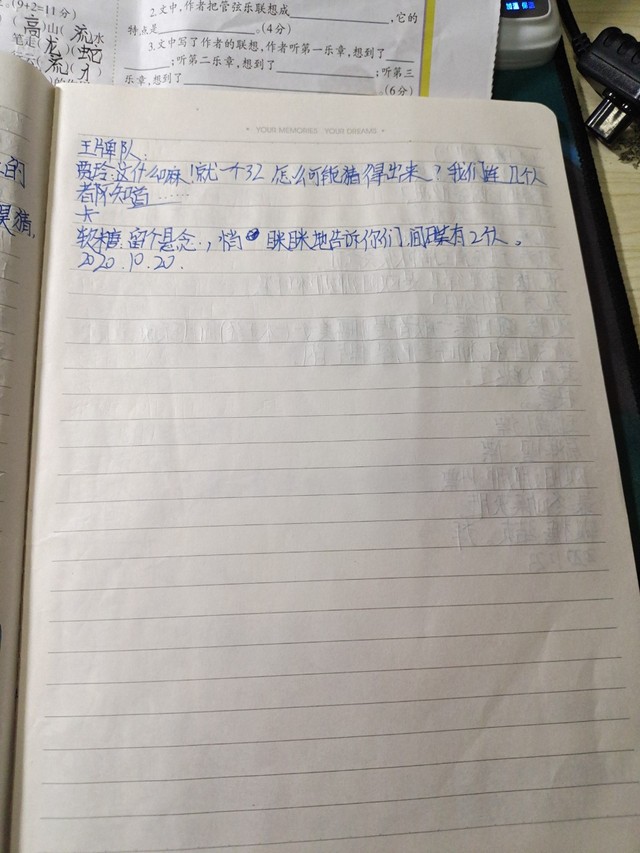 。(9+2=11分)
(高)山(流)水
笔走(龙)(蛇)
2.文中,作者把管弦乐联想成________,它的
特点是________。(4分)
3.文中写了作者的联想,作者听第一乐章,想到了
________;听第二乐章,想到了________;听第三
乐章,想到了________。(6分)
• YOUR MEMORIES YOUR DREAMS •
王牌队:
贾玲:这什么麻!就一个32 怎么可能猜得出来?我们连几个人
都不知道……
卡
软糖:留个悬念.,悄 眯眯地告诉你们,间谍有2个人。
2020.10.20.
的
猜,